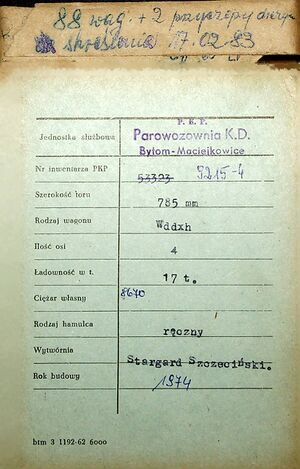 88 wag. + 2 przyczepy
skreślenia 17.02.83
P. K. P.
Jednostka służbowa Parowozownia K.D.
Bytom-Maciejkowice
Nr inwentarza PKP 53323 5215-4
Szerokość toru 785 mm
Rodzaj wagonu Wddxh
Ilość osi 4
Ładowność w t. 17 t.
Ciężar własny 8670
Rodzaj hamulca ręczny
Wytwórnia Stargard Szczeciński.
Rok budowy 1974
btm 3 1192-62 6000